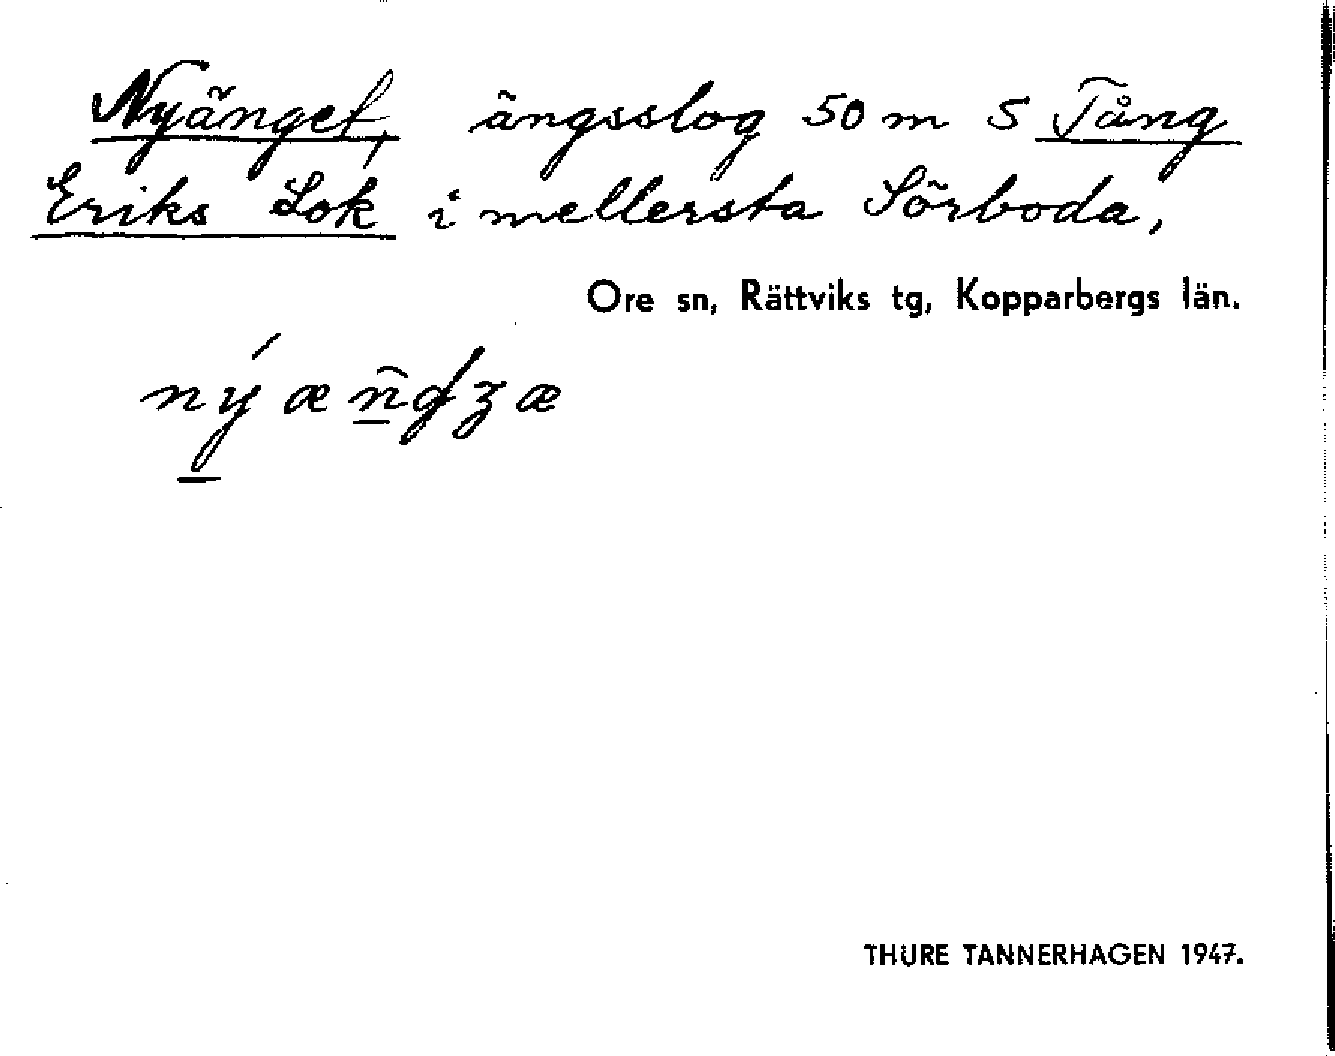 Nyänget, ängsslog 50 m S Tång
Eriks Lok i mellersta Sörboda,
Ore sn, Rättviks tg, Kopparbergs län.
THURE TANNERHAGEN 1947.